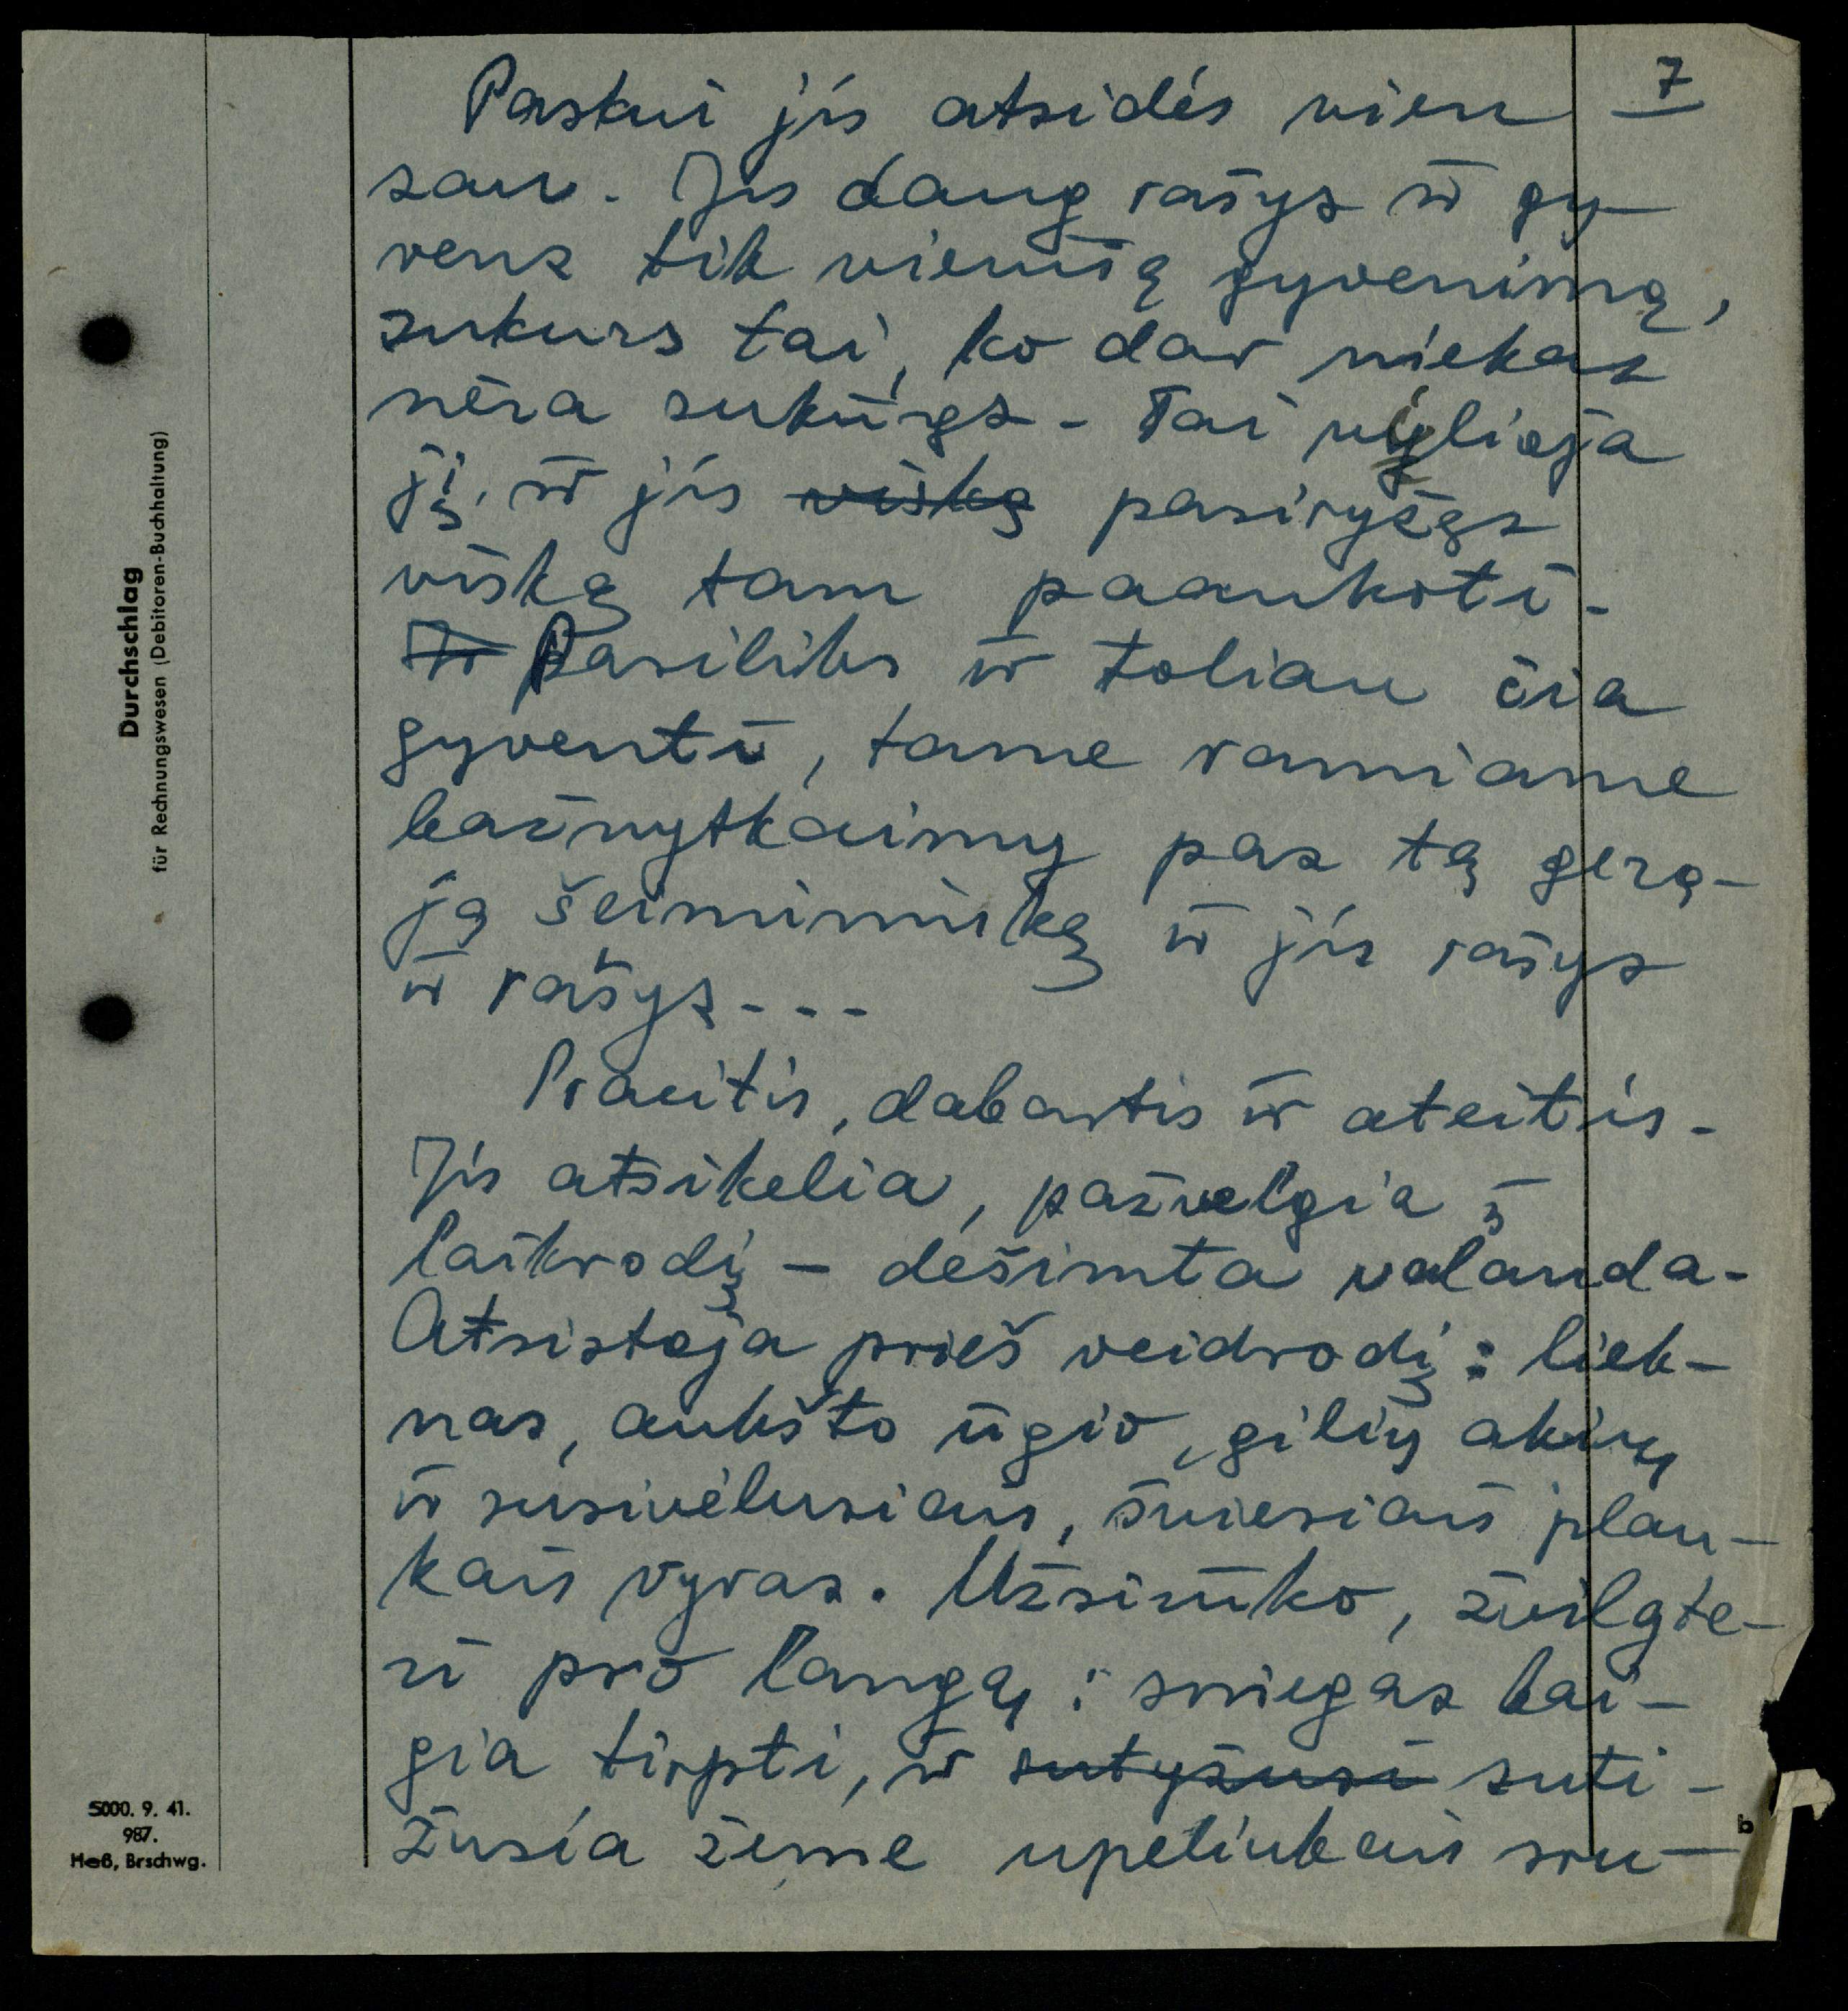 7
Paskui jis atsidės vien
sau. Jis daug rašys ir gy-
vens tik vienišą gyvenimą,
sukurs tai, ko dar niekas
nėra sukūręs. Tai vylioja
jį, ir jis viską pasiryžęs
viską tam paaukoti.
Ir Pasiliks ir toliau čia
gyventi, tame ramiame
bažnytkaimy pas tą gerą-
ją šeimininką ir jis rašys
ir rašys...
Praeitis, dabartis ir ateitis.
Jis atsikelia, pažvelgia į
laikrodį – dešimta valanda.
Atsistoja prieš veidrodį: liek-
nas, aukšto ūgio, gilių akių
ir susivėlusiais, šviesiais plau-
kais vyras. Užsirūko, žvilgte-
ri pro langą: sniegas bai-
gia tirpti, ir sutyžusi suti-
žusia žeme upeliukais sru-
Durchschlag
für Rechnungswesen (Debitoren-Buchhaltung)
5000. 9. 41.
987.
Heß, Brschwg.
b